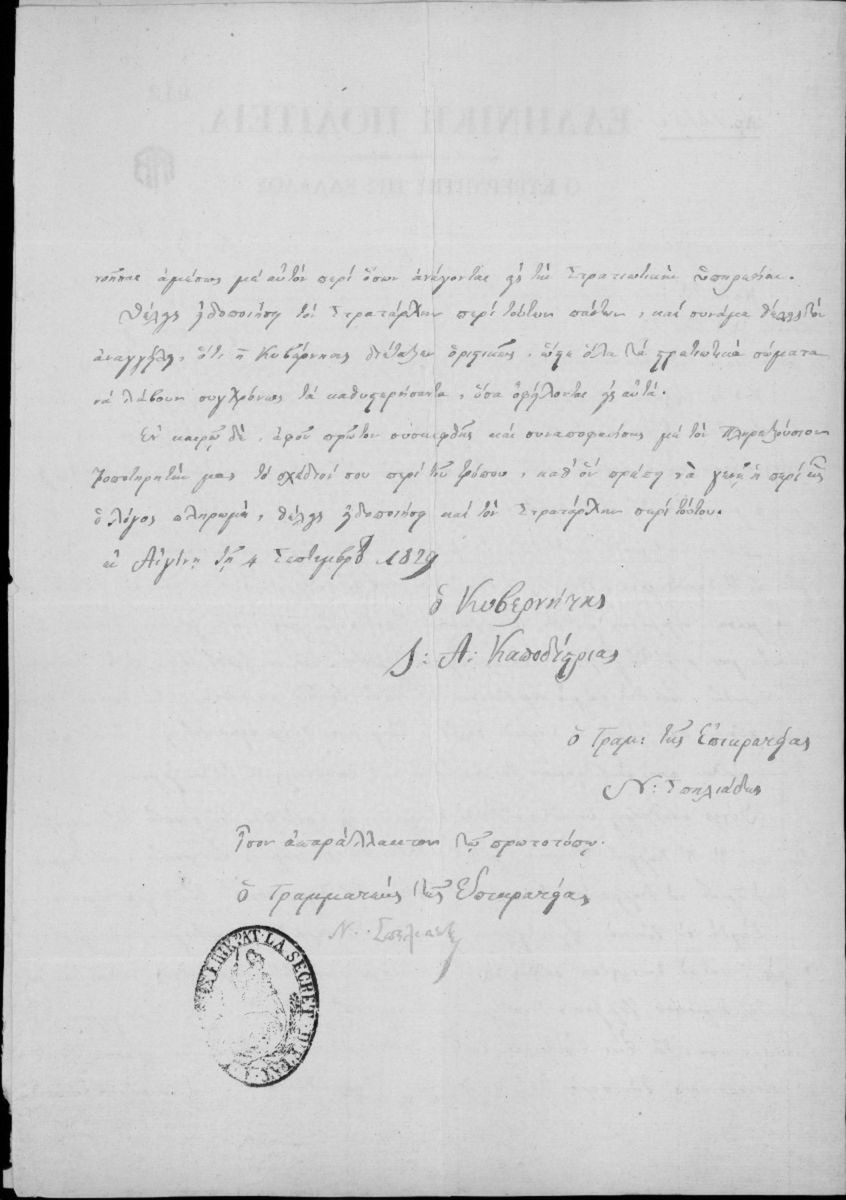 νοήσης ἀμέσως μὲ αὐτὸν περὶ ὅσων ἀνάγονται εἰς τὴν Στρατιωτικὴν ὑπηρεσίαν.
Θέλεις εἰδοποιήσῃ τὸν Στρατάρχην περὶ τούτων πάντων, καὶ συνάμα θέλεις τὸν
ἀναγγείλῃ, ὅτι ἡ Κυβέρνησις διέταξεν ὁριστικῶς, ὥστε ὅλα τὰ στρατιωτικὰ σώματα
νὰ λάβουν συγχρόνως τὰ καθυστερήσαντα, ὅσα ὀφείλονται εἰς αὐτά.
Ἐν καιρῷ δὲ, ἀφοῦ πρῶτον συσκεφθῇς καὶ συναποφασίσῃς μὲ τὸν Πληρεξούσιον
Τοποτηρητήν μας τὸ σχέδιόν σου περὶ τοῦ τρόπου, καθ' ὃν πρέπει νὰ γενῇ ἡ περὶ ἧς
ὁ λόγος πληρωμὴ, θέλεις εἰδοποιήσῃ καὶ τὸν Στρατάρχην περὶ τούτου.
ἐν Αἰγίνῃ τῇ 4 Σεπτεμβρίου 1829
ὁ Κυβερνήτης
Ι: Α: Καποδίστριας
ὁ Γραμ: τῆς Ἐπικρατείας
Ν: Σπηλιάδης
Ἴσον ἀπαράλλακτον τῷ πρωτοτύπῳ.
ὁ Γραμματεὺς τῆς Ἐπικρατείας
Ν. Σπηλιάδης
LA SECRET. D'ETAT